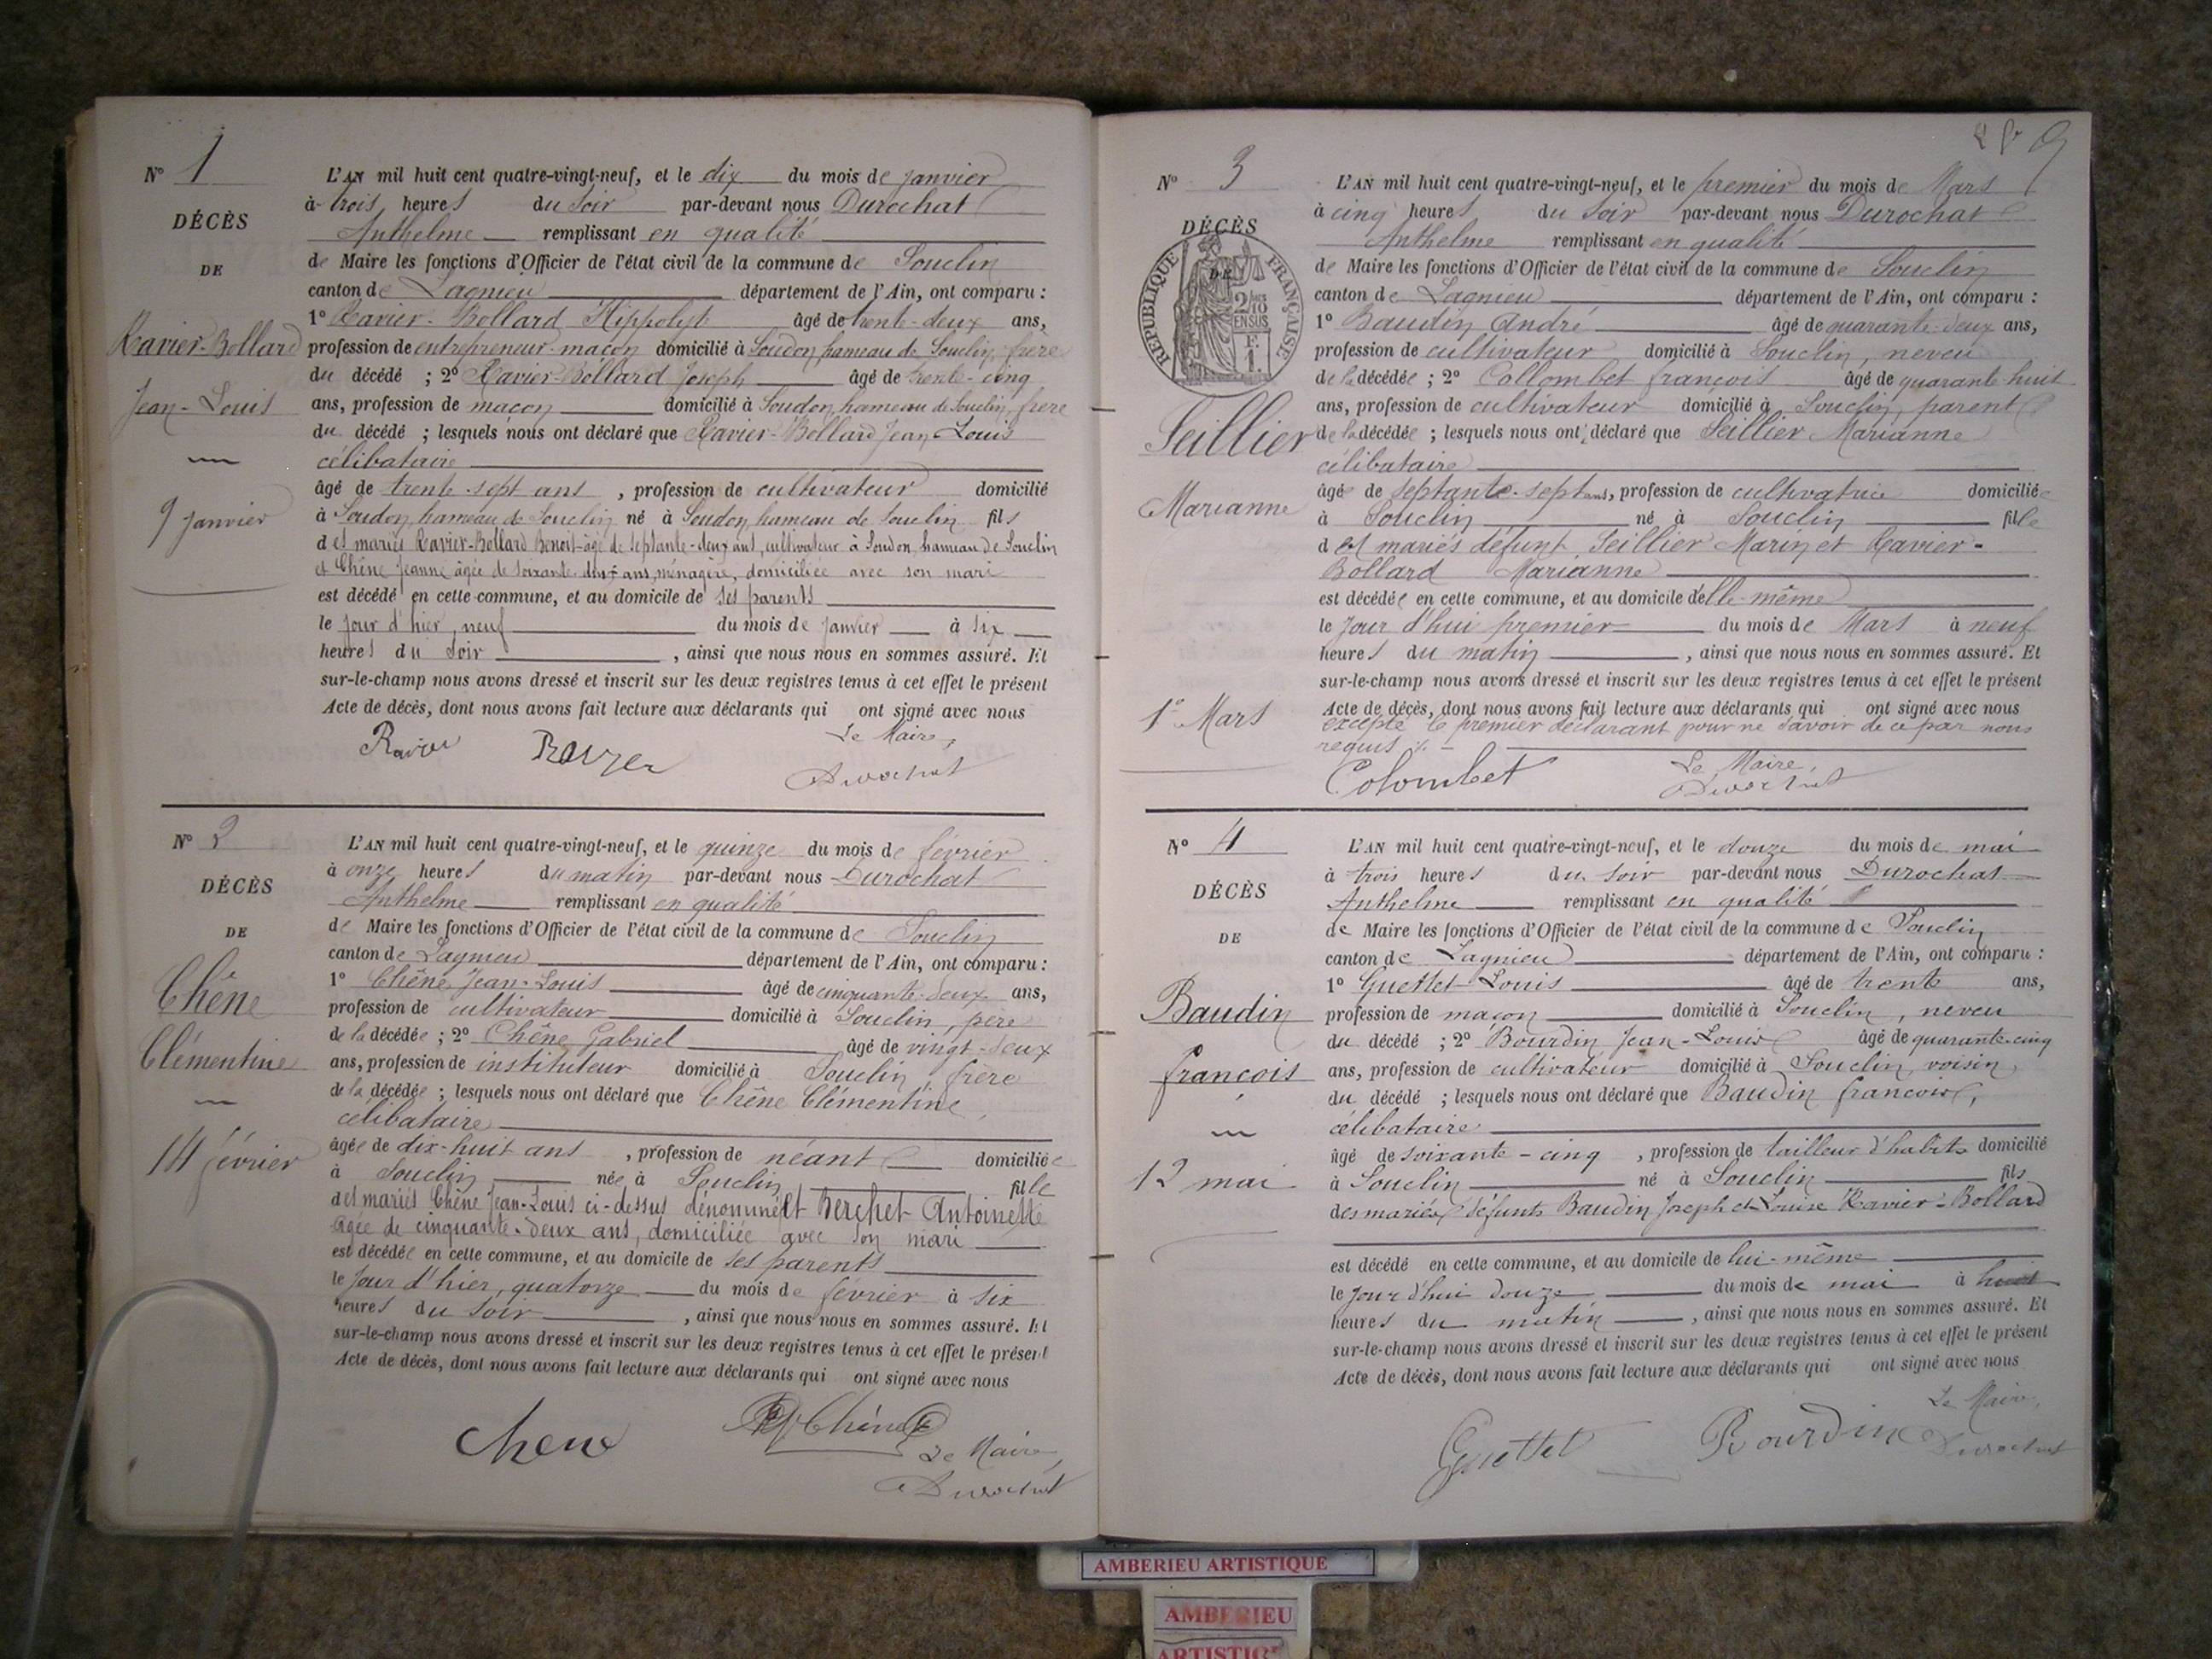 N° 1
DÉCÈS
DE
Ravier-Bollard
Jean-Louis
9 janvier
L'AN mil huit cent quatre-vingt-neuf, et le dix du mois de janvier
à trois heures du soir par-devant nous Durochat
Anthelme remplissant en qualité
de Maire les fonctions d'Officier de l'état civil de la commune de Souclin
canton de Lagnieu département de l'Ain, ont comparu :
1° Ravier-Bollard Hippolyte âgé de trente-deux ans,
profession de entrepreneur-maçon domicilié à Soudon, hameau de Souclin, frère
du décédé ; 2° Ravier-Bollard Joseph âgé de trente-cinq
ans, profession de maçon domicilié à Soudon, hameau de Souclin, frère
du décédé ; lesquels nous ont déclaré que Ravier-Bollard Jean Louis
célibataire
âgé de trente-sept ans, profession de cultivateur domicilié
à Soudon, hameau de Souclin né à Soudon, hameau de Souclin fils
des mariés Ravier-Bollard Benoit âgé de septante-deux ans, cultivateur à Soudon, hameau de Souclin
et Chêne Jeanne âgée de soixante- ans, ménagère, domiciliée avec son mari
est décédé en cette commune, et au domicile de ses parents
le jour d'hier, neuf du mois de janvier à six
heures du soir, ainsi que nous nous en sommes assuré. Et
sur-le-champ nous avons dressé et inscrit sur les deux registres tenus à cet effet le présent
Acte de décès, dont nous avons fait lecture aux déclarants qui ont signé avec nous
Le Maire,
Durochat
N° 2
DÉCÈS
DE
Chêne
Clémentine
14 février
L'AN mil huit cent quatre-vingt-neuf, et le quinze du mois de février
à onze heures du matin par-devant nous Durochat
Anthelme remplissant en qualité
de Maire les fonctions d'Officier de l'état civil de la commune de Souclin
canton de Lagnieu département de l'Ain, ont comparu :
1° Chêne, Jean-Louis âgé de cinquante-deux ans,
profession de cultivateur domicilié à Souclin, père
de la décédée ; 2° Chêne Gabriel âgé de vingt-deux
ans, profession de instituteur domicilié à Souclin, frère
de la décédée ; lesquels nous ont déclaré que Chêne Clémentine,
célibataire
âgée de dix-huit ans, profession de néant domiciliée
à Souclin née à Souclin fille
des mariés Chêne Jean-Louis ci-dessus dénommé et Berchet Antoinette
âgée de cinquante-deux ans, domiciliée avec son mari
est décédée en cette commune, et au domicile de ses parents
le jour d'hier, quatorze du mois de février à six
heures du soir, ainsi que nous nous en sommes assuré. Et
sur-le-champ nous avons dressé et inscrit sur les deux registres tenus à cet effet le présent
Acte de décès, dont nous avons fait lecture aux déclarants qui ont signé avec nous
Chene
Chêne
Le Maire,
Durochat
N° 3
DÉCÈS
DE
RÉPUBLIQUE FRANÇAISE
2/10 EN SUS
F.
1.
Seillier
Marianne
1er Mars
L'AN mil huit cent quatre-vingt-neuf, et le premier du mois de Mars
à cinq heures du soir par-devant nous Durochat
Anthelme remplissant en qualité
de Maire les fonctions d'Officier de l'état civil de la commune de Souclin
canton de Lagnieu département de l'Ain, ont comparu :
1° Baudin André âgé de quarante-deux ans,
profession de cultivateur domicilié à Souclin, neveu
de la décédée ; 2° Collombet françois âgé de quarante huit
ans, profession de cultivateur domicilié à Souclin, parent
de la décédée ; lesquels nous ont déclaré que Seillier Marianne
célibataire
âgée de septante-sept ans, profession de cultivatrice domiciliée
à Souclin né à Souclin fille
des mariés défunt Seillier Marin et Ravier-
Bollard Marianne
est décédée en cette commune, et au domicile d'elle-même
le jour d'hui premier du mois de Mars à neuf
heures du matin, ainsi que nous nous en sommes assuré. Et
sur-le-champ nous avons dressé et inscrit sur les deux registres tenus à cet effet le présent
Acte de décès, dont nous avons fait lecture aux déclarants qui ont signé avec nous
excepté le premier déclarant pour ne savoir de ce par nous
requis
Colombet
Le Maire,
Durochat
N° 4
DÉCÈS
DE
Baudin
françois
12 mai
L'AN mil huit cent quatre-vingt-neuf, et le douze du mois de mai
à trois heures du soir par-devant nous Durochat
Anthelme remplissant en qualité
de Maire les fonctions d'Officier de l'état civil de la commune de Souclin
canton de Lagnieu département de l'Ain, ont comparu :
1° Guettet Louis âgé de trente ans,
profession de maçon domicilié à Souclin, neveu
du décédé ; 2° Bourdin Jean-Louis âgé de quarante-cinq
ans, profession de cultivateur domicilié à Souclin, voisin
du décédé ; lesquels nous ont déclaré que Baudin françois,
célibataire
âgé de soixante-cinq, profession de tailleur d'habits domicilié
à Souclin né à Souclin fils
des mariés défunts Baudin Joseph et Louise Ravier-Bollard
est décédé en cette commune, et au domicile de lui-même
le jour d'hui douze du mois de mai à huit
heures du matin, ainsi que nous nous en sommes assuré. Et
sur-le-champ nous avons dressé et inscrit sur les deux registres tenus à cet effet le présent
Acte de décès, dont nous avons fait lecture aux déclarants qui ont signé avec nous
Le Maire,
Guettet
Bourdin
Durochat
AMBERIEU ARTISTIQUE
AMBERIEU
ARTISTIQ